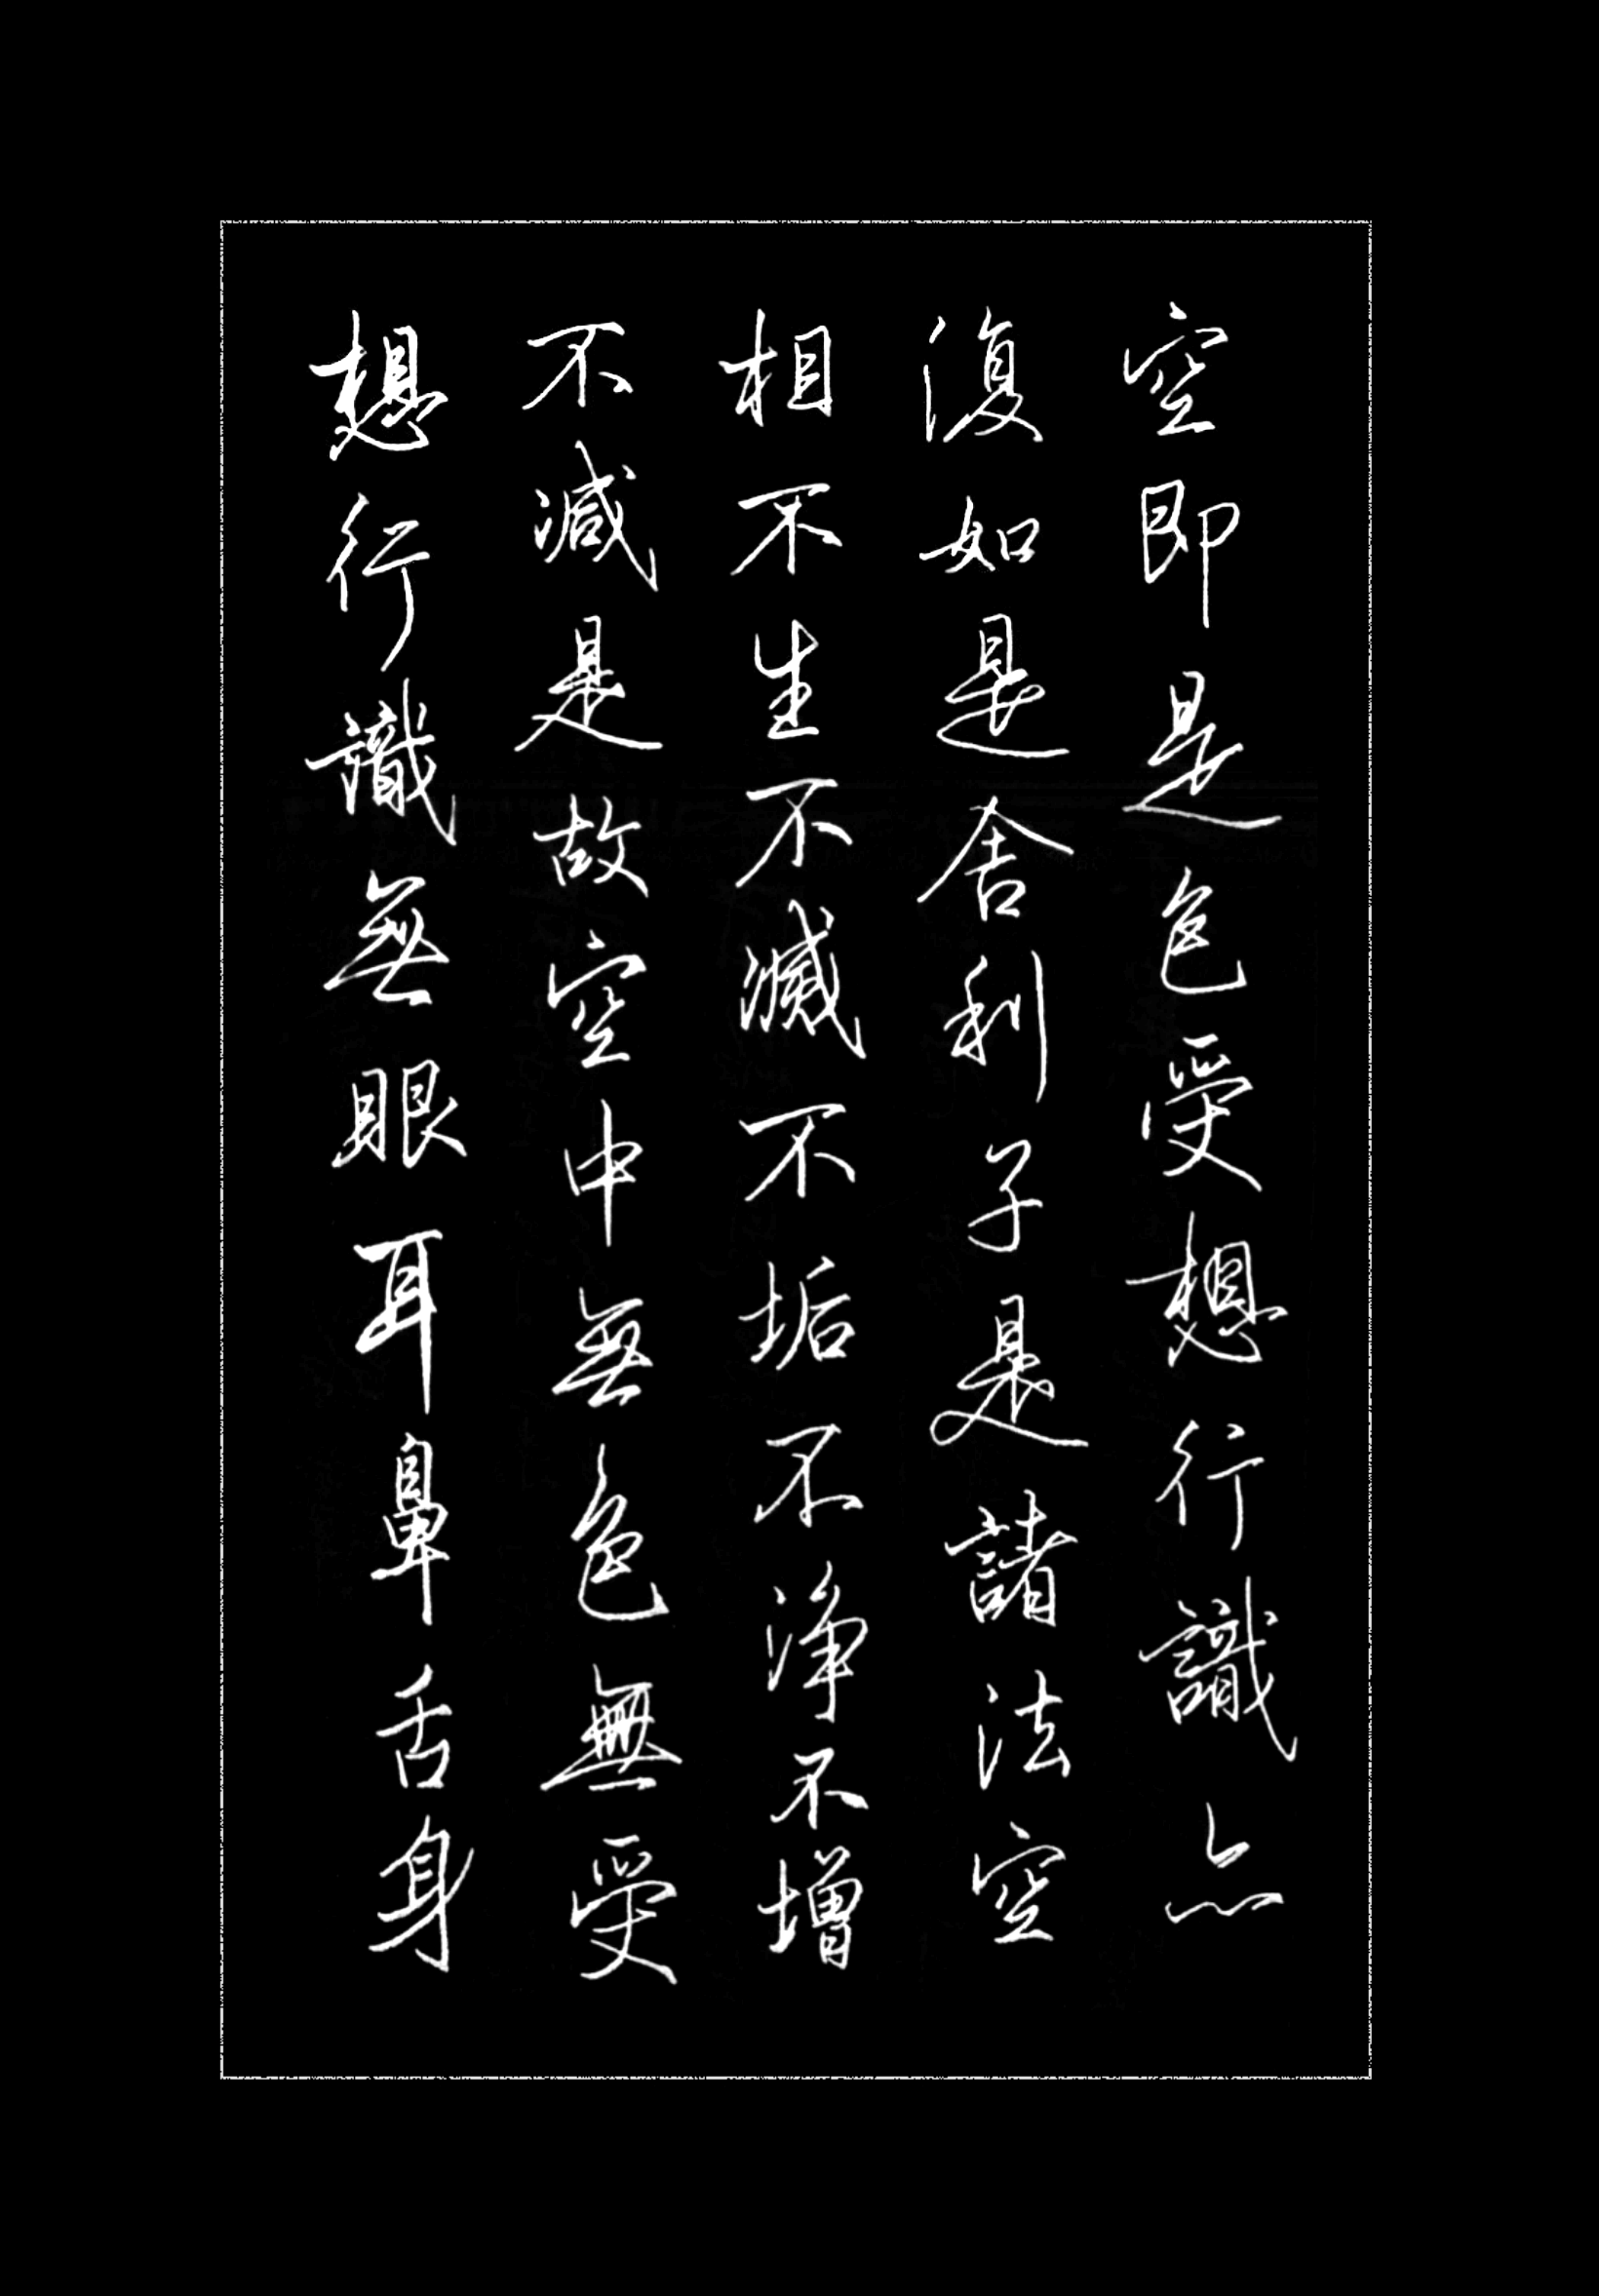 空即是色受想行識亦
復如是舍利子是諸法空
相不生不滅不垢不淨不增
不減是故空中無色無受
想行識無眼耳鼻舌身